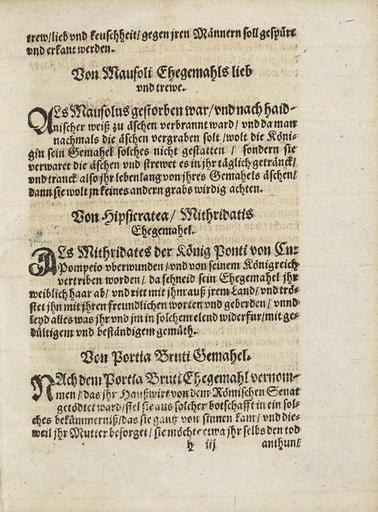 trew/lieb vnd keuschheit/ gegen jren Männern soll gespürt
vnd erkant werden.
Von Mausoli Ehegemahls lieb
vnd trewe.
ALs Mausolus gestorben war/vnd nach haid-
nischer weiß zu äschen verbrannt ward/ vnd da man
nachmals die äschen vergraben solt/wolt die Köni-
gin sein Gemahel solches nicht gestatten / sondern sie
verwaret die äschen vnd strewet es in jhr täglich getränck/
vnd tranck also jhr lebenlang von jhres Gemahels äschen/
dann sie wolt jn keines andern grabs wirdig achten.
Von Hipsicratea/ Mithridatis
Ehegemahel.
ALs Mithridates der König Ponti von Cn:
Pompeio vberwunden / vnd von seinem Königreich
vertriben worden / da schneid sein Ehegemahel jhr
weiblich haar ab/ vnd ritt mit jhm auß jrem Land/ vnd trö-
stet jhn mit jhren freundlichen worten vnd geberden / vnnd
leyd alles was jhr vnd jm in solchem elend widerfur/mit ge-
dültigem vnd beständigem gemüth.
Von Portia Bruti Gemahel.
NAch dem Portia Bruti Ehegemahl vernom-
men / das jhr Haußwirt von dem Römischen Senat
getödtet ward/ fiel sie auß solcher botschafft in ein sol-
ches bekümmerniß/das sie gantz von sinnen kam / vnd die-
weil jhr Mutter besorget/ sie möchte etwa jhr selbs den tod
h iij anthun/